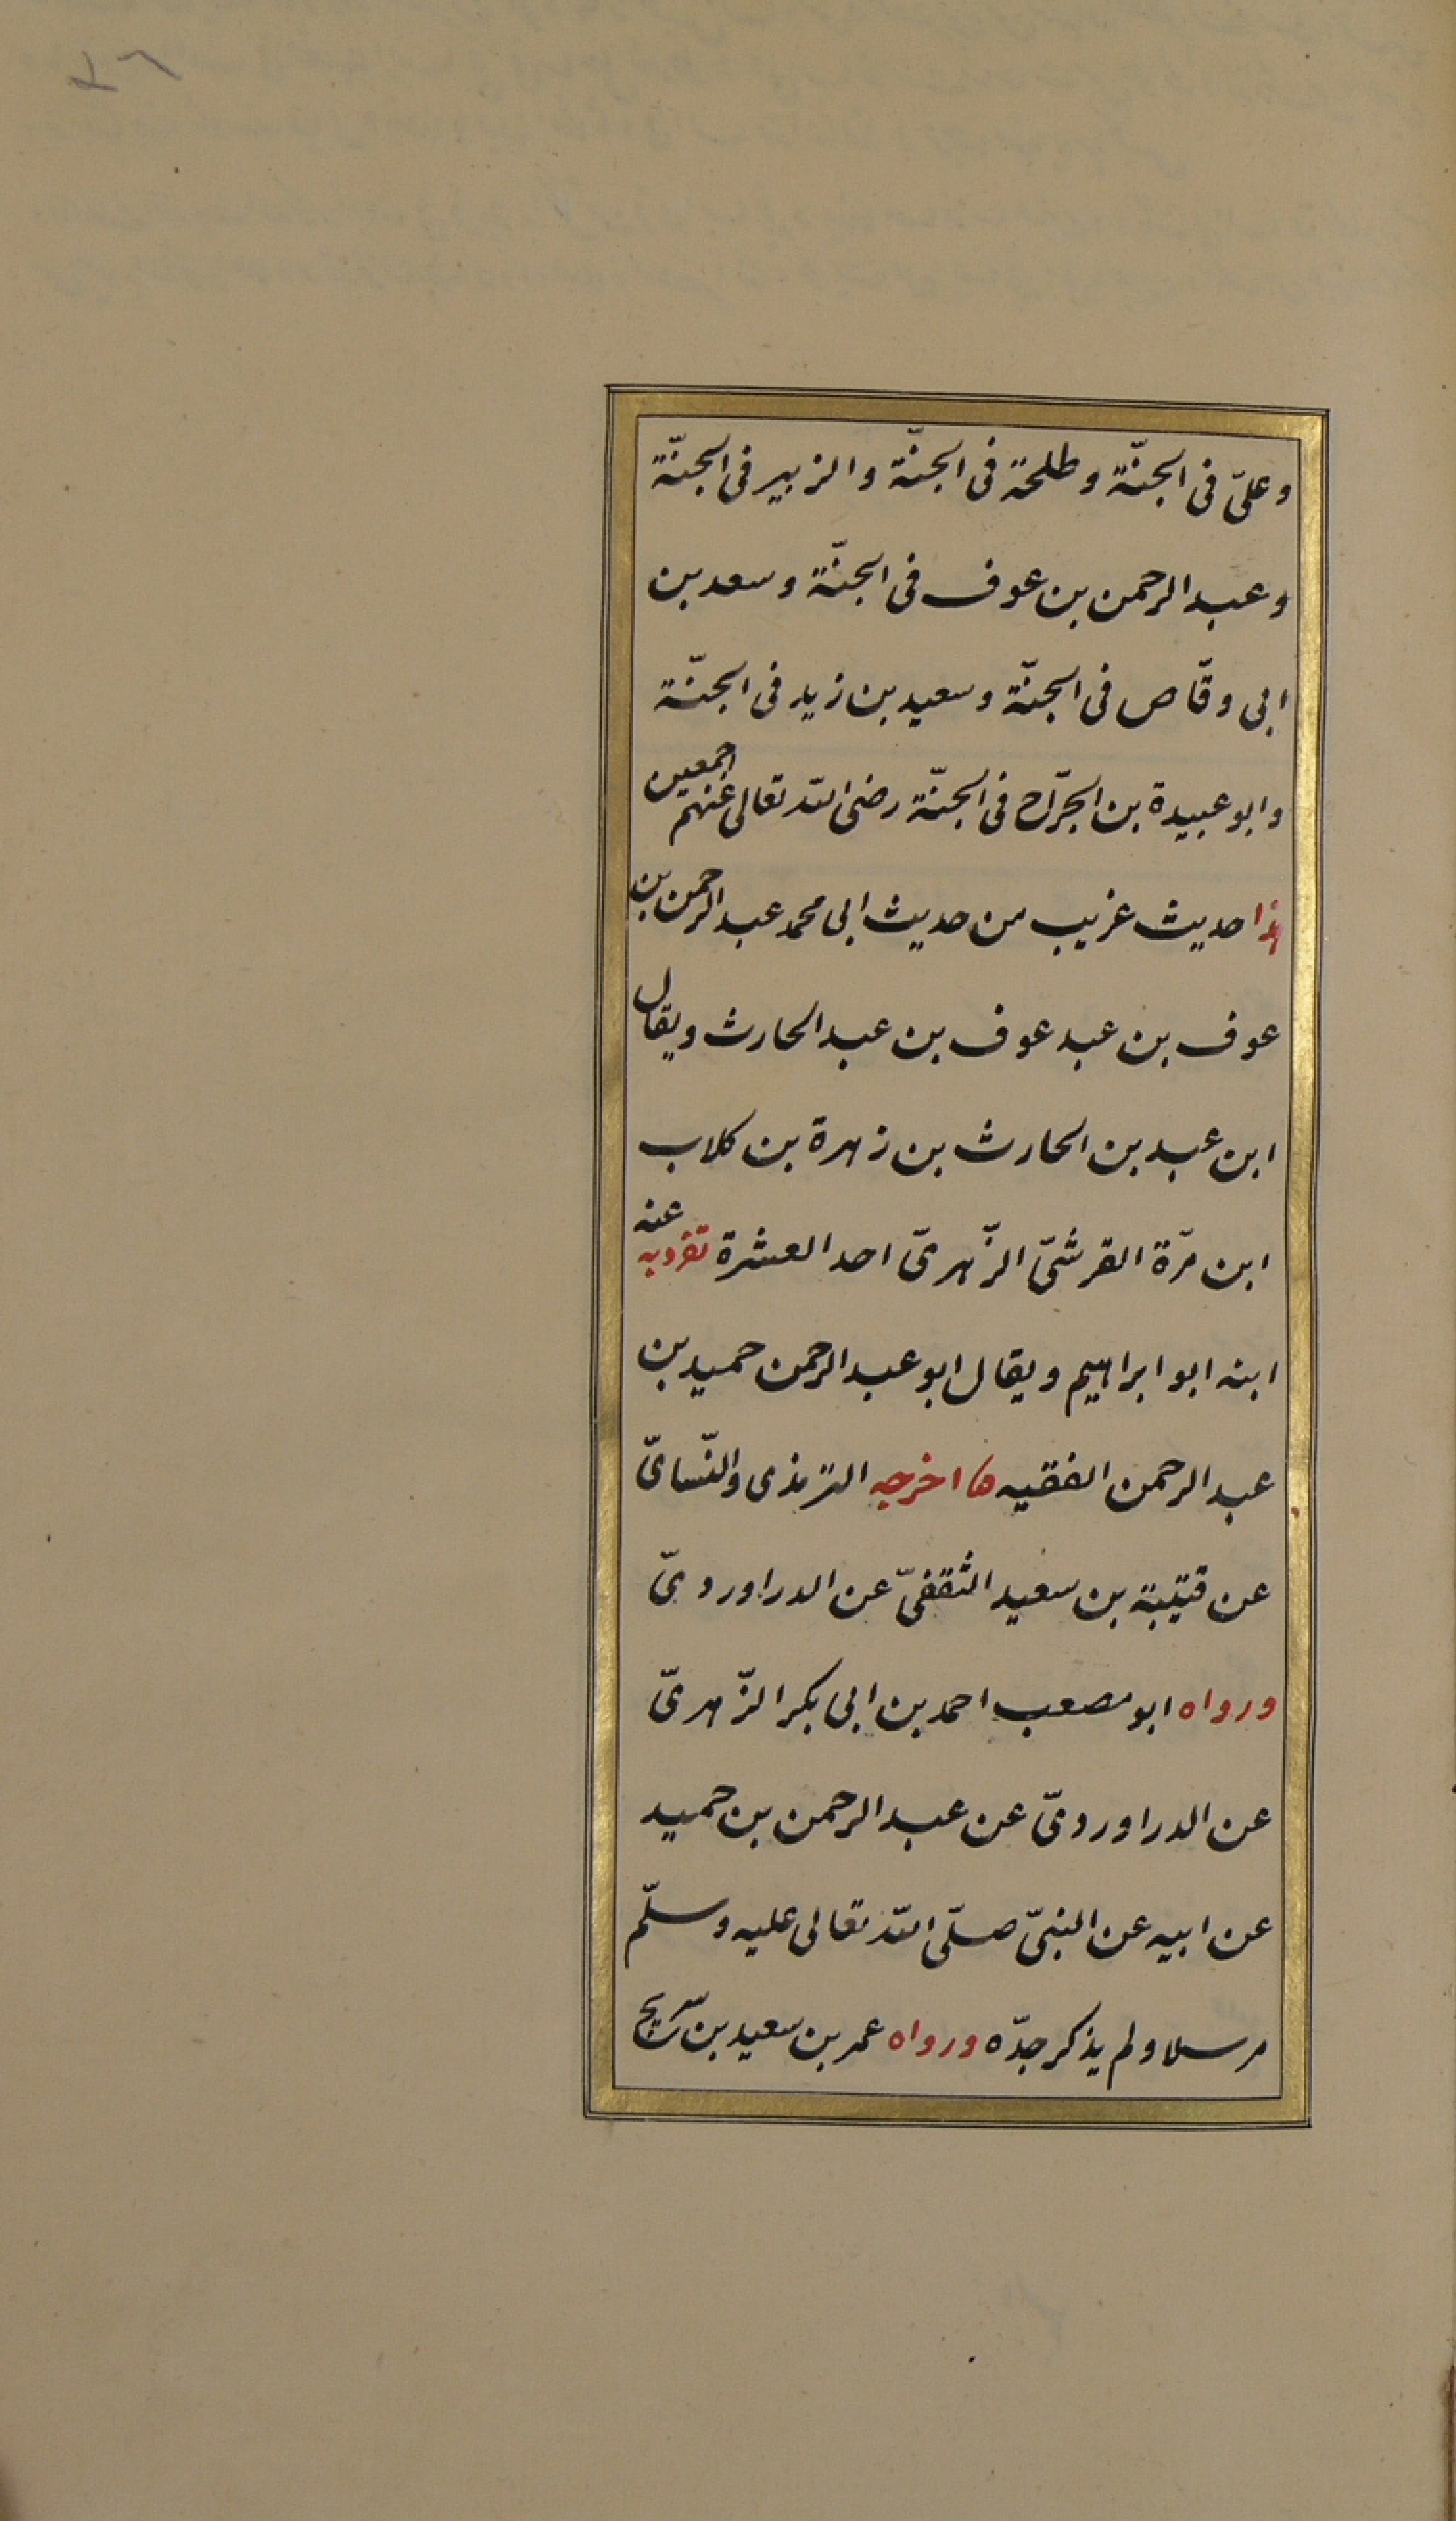 وعلىّ فى الجنّة وطلحة فى الجنّة والزبير فى الجنّة
وعبد الرحمن بن عوف فى الجنّة وسعد بن
ابى وقّاص فى الجنّة وسعيد بن زيد فى الجنّة
وابو عبيدة بن الجرّاح فى الجنّة رضى الله تعالى عنهم اجمعين
هذا حديث غريب من حديث ابى محمد عبد الرحمن بن
عوف بن عبد عوف بن عبد الحارث ويقال
ابن عبد بن الحارث بن زهرة بن كلاب
ابن مرّة القرشىّ الزّهرىّ احد العشرة تفرد به عنه
ابنه ابو ابراهيم ويقال ابو عبد الرحمن حميد بن
عبد الرحمن الفقيه اخرجه الترمذى والنّسائىّ
عن قتيبة بن سعيد الثقفىّ عن الدراوردىّ
ورواه ابو مصعب احمد بن ابى بكر الزّهرىّ
عن الدراوردىّ عن عبد الرحمن بن حميد
عن ابيه عن النبىّ صلّى الله تعالى عليه وسلّم
مرسلا ولم يذكر جدّه ورواه عمر بن سعيد بن سريج